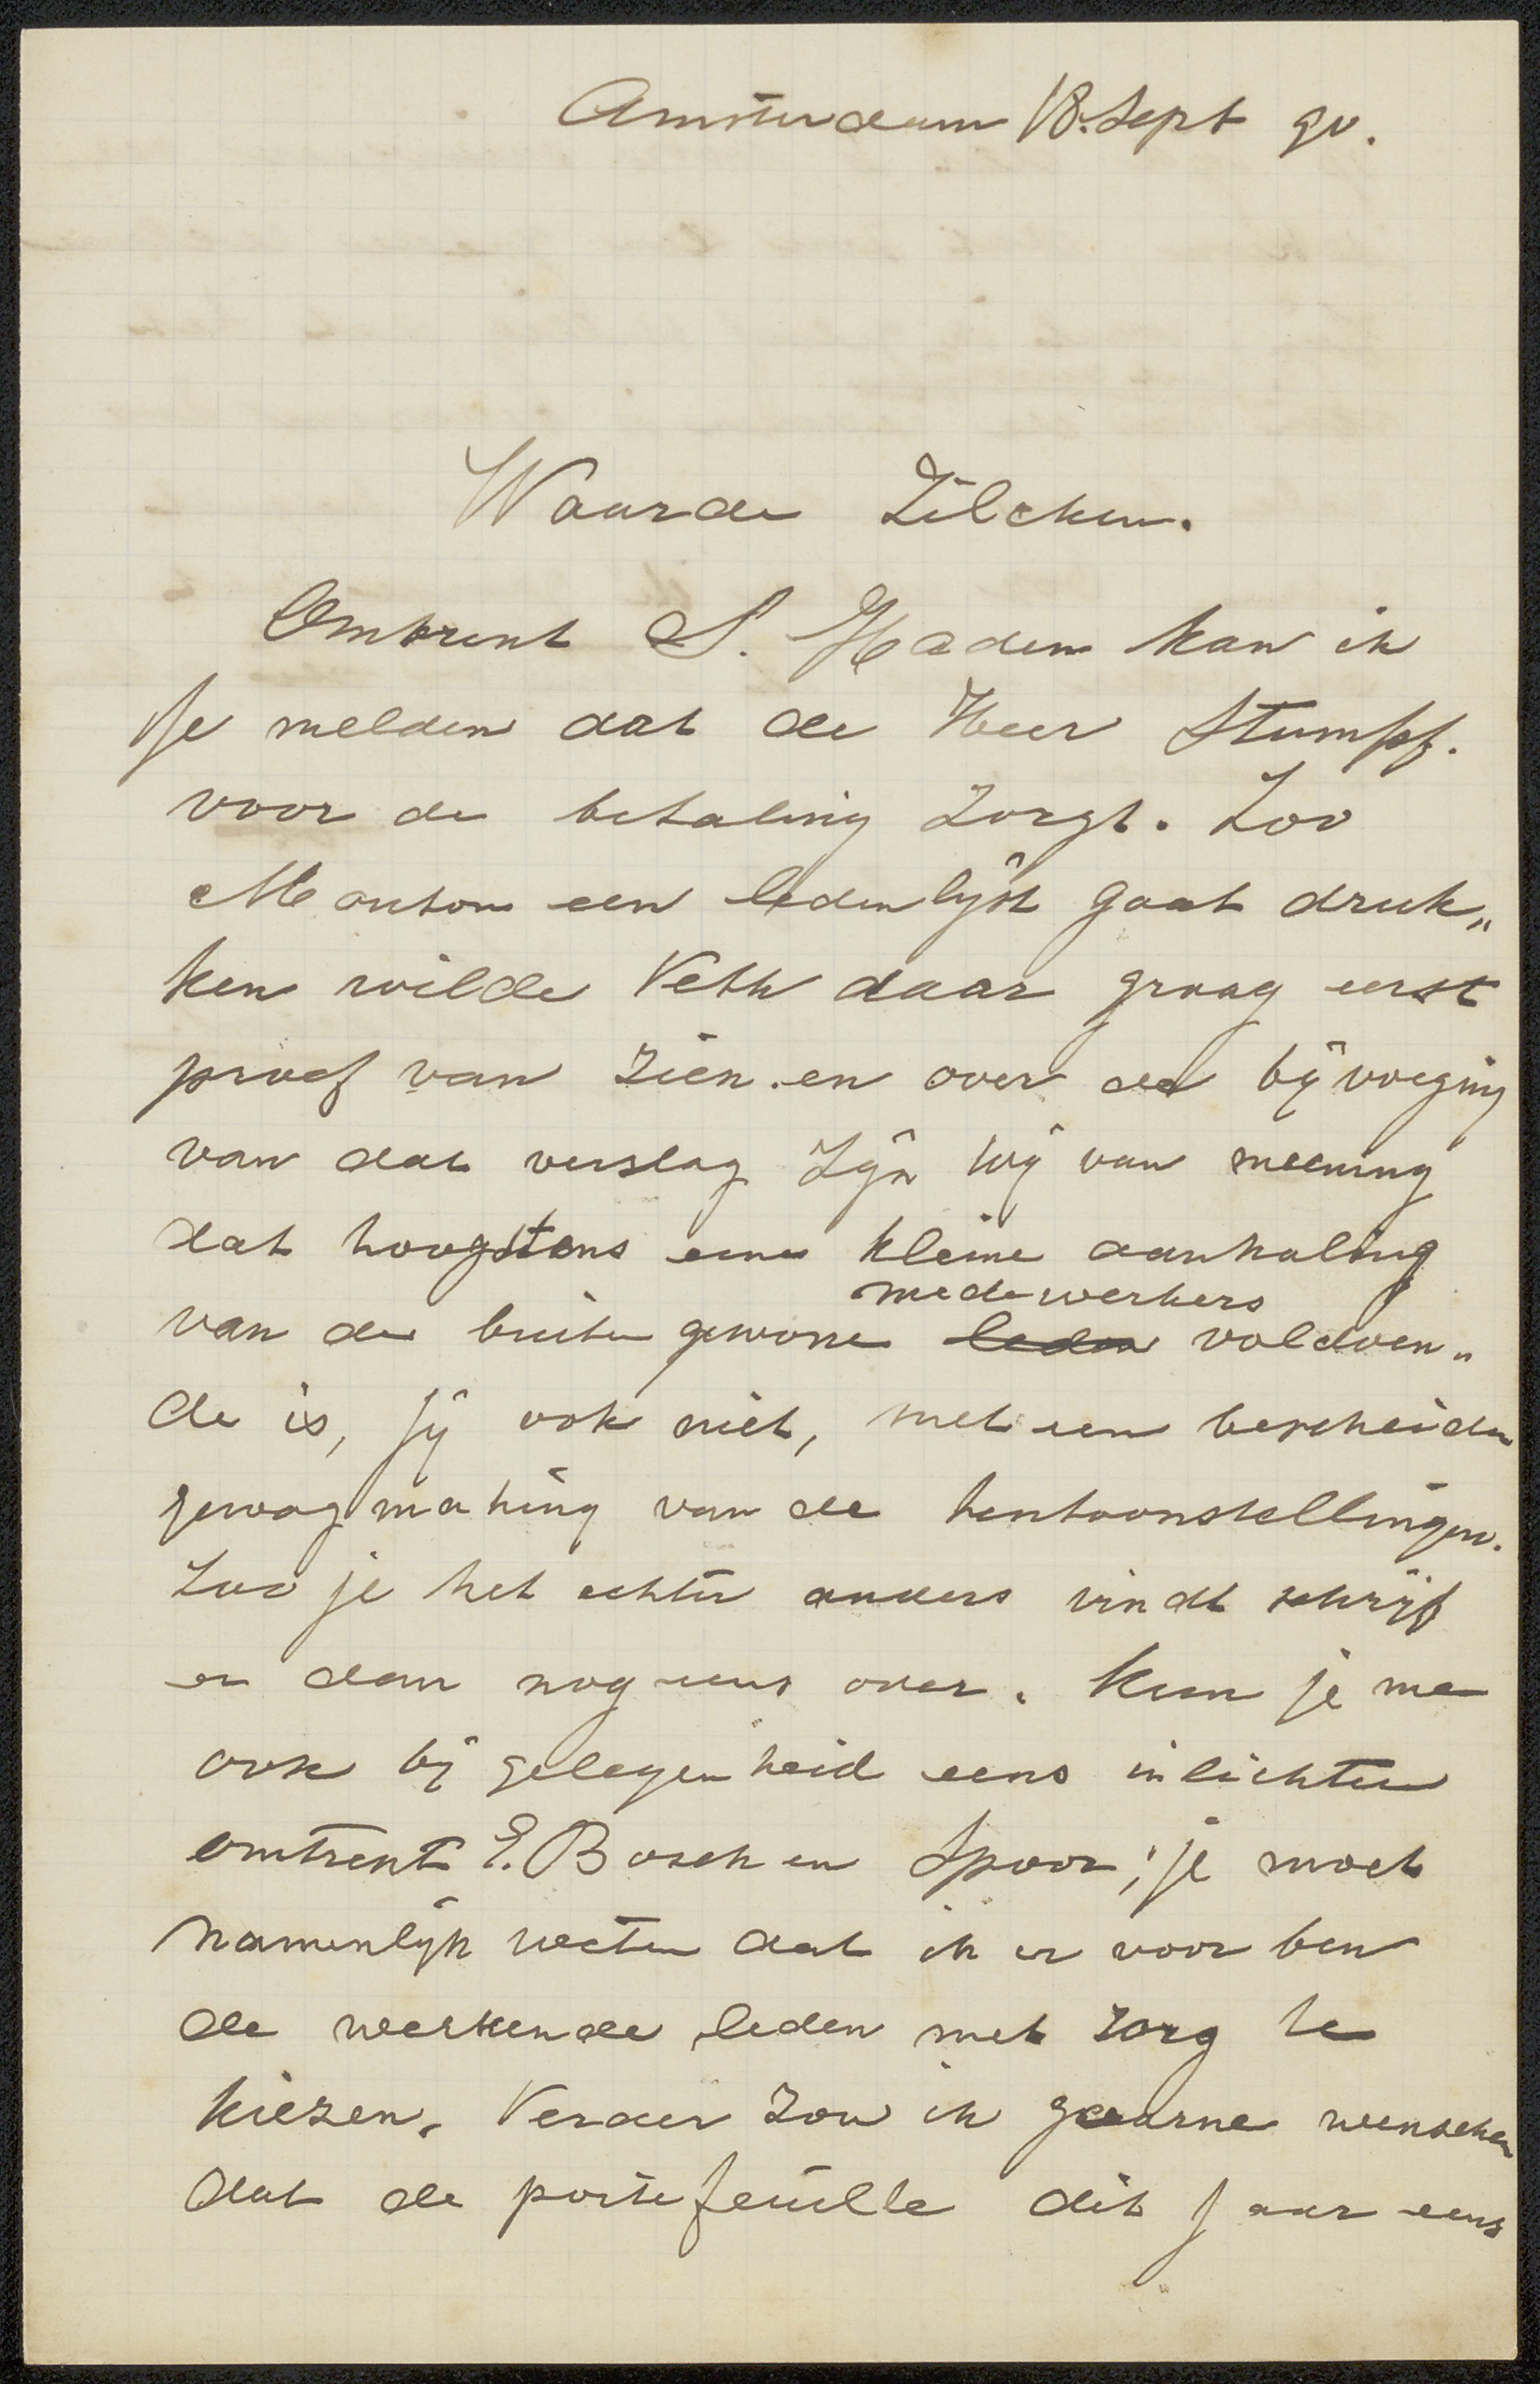 Amsterdam 18. Sept 90.
Waarde Zilcken.
Omtrent S. Haden kan ik
je melden dat de Heer Stumpf.
voor de betaling zorgt. Zoo
Mouton een ledenlijst gaat druk„
ken wilde Veth daar graag eerst
proef van zien. en over de bijvoeging
van dat verslag zijn wij van meening
dat hoogstens eene kleine aanhaling
medewerkers
van de buitengewone leden voldoen„
de is, jij ook niet, met een bescheiden
gewagmaking van de tentoonstellingen.
Zoo je het echter anders vindt schrijf
er dan nog eens over. Kun je me
ook bij gelegenheid eens inlichten
omtrent E. Bosch en Spoor; je moet
namenlijk weten dat ik er voor ben
de werkende leden met zorg te
kiezen. Verder zou ik gaarne wenschen
dat de portefeuille dit jaar eens